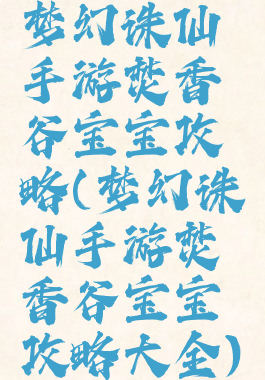 梦幻诛仙
手游焚香
谷宝宝攻
略(梦幻诛
仙手游焚
香谷宝宝
攻略大全)